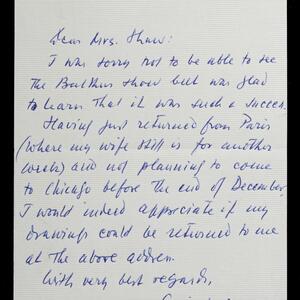 Dear Mrs. Shaw:
I was sorry not to be able to see
the Balthus show but was glad
to learn that it was such a success.
Having just returned from Paris
(where my wife still is for another
week) and not planning to come
to Chicago before the end of December,
I would indeed appreciate if my
drawings could be returned to me
at the above address.
With very best regards,